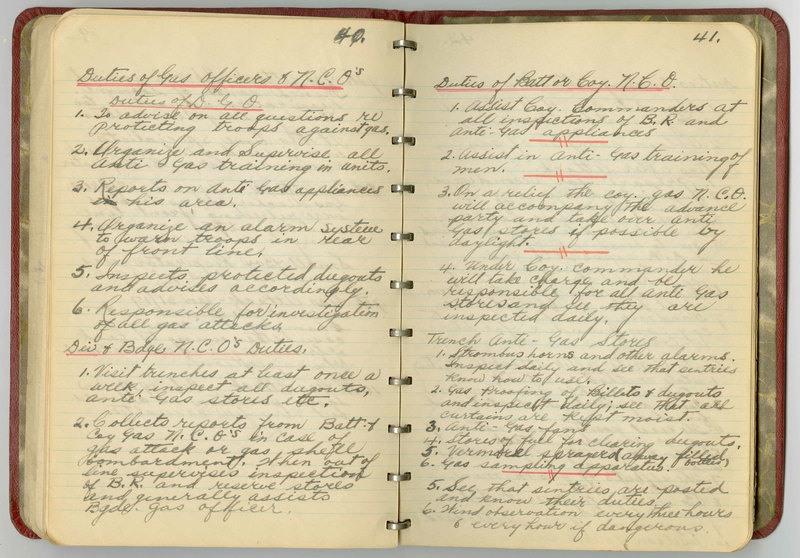 40.
Duties of Gas Officers & N.C.O's
Duties of D.G.O
1. To advise on all questions re
protecting troops against gas.
2. Organize and Supervise all
Anti Gas training in units.
3. Reports on Anti Gas appliances
in his area.
4. Organize an alarm system
to warn troops in rear
of front line.
5. Inspects protected dugouts
and advises accordingly.
6. Responsible for investigation
of all gas attacks
Div & Bdge N.C.O's Duties.
1. Visit trenches at least once a
week, inspect all dugouts,
anti Gas stores etc.
2. Collects reports from Batt &
Coy Gas N.C.O's in case of
gas attack or gas shell
bombardment. When out of
line supervises inspection
of B.R. and reserve stores
and generally assists
Bgde. gas officer.
41.
Duties of Batt or Coy. N.C.O.
1. Assist Coy. commanders at
all inspections of B.R. and
anti-Gas appliances
2. Assist in anti-Gas training of
men.
3. On a relief the coy. gas N.C.O.
will accompany the advance
party and take over anti
Gas stores if possible by
daylight.
4. Under Coy. commander he
will take charge and be
responsible for all anti Gas
stores and see they are
inspected daily.
Trench Anti-Gas Stores
1. Strombus horns and other alarms.
Inspect daily and see that sentries
know how to use.
2. Gas Proofing of Billets & dugouts
and inspect daily; see that all
curtains are kept moist.
3. Anti-Gas fans
4. Stores of fuel for clearing dugouts.
5. Vermorel sprayed away filled bottles
6. Gas sampling apparatus.
5. See that sentries are posted
and know their duties.
6. Wind observation every three hours
& every hour if dangerous.